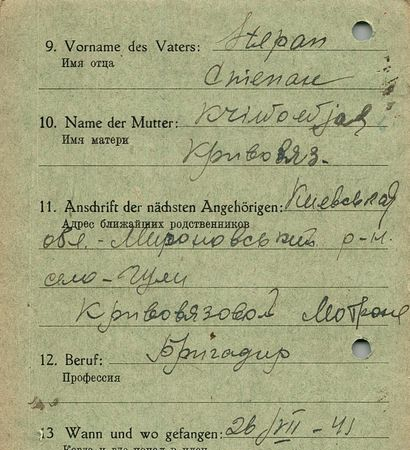 9. Vorname des Vaters: Stepan
Имя отца
Степан
10. Name der Mutter: Kriwowjas
Имя матери
Кривовяз.
11. Anschrift der nächsten Angehörigen: Киевская
Адрес ближайших родственников
обл. - Мироновський р-н.
село - Гули
Кривовязовой Мотроне
12. Beruf: Бригадир
Профессия
13 Wann und wo gefangen: 26/VII - 41